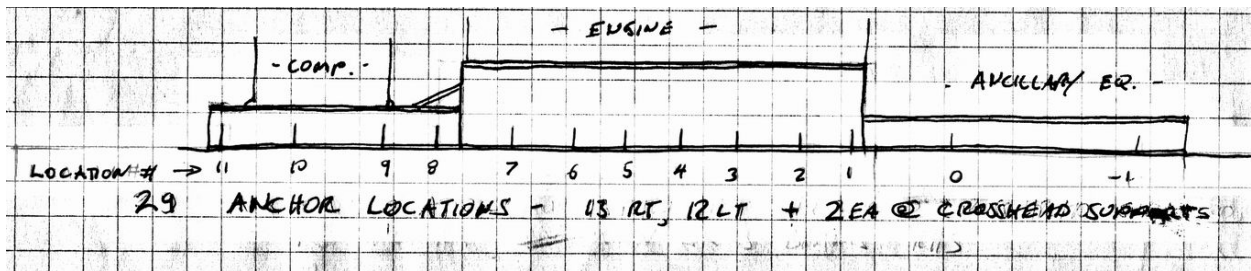 - ENGINE -
- COMP. -
- ANCILLARY EQ. -
LOCATION # → 11 10 9 8 7 6 5 4 3 2 1 0 -1
29 ANCHOR LOCATIONS - 13 RT, 12 LT + 2 EA @ CROSSHEAD SUPPORTS